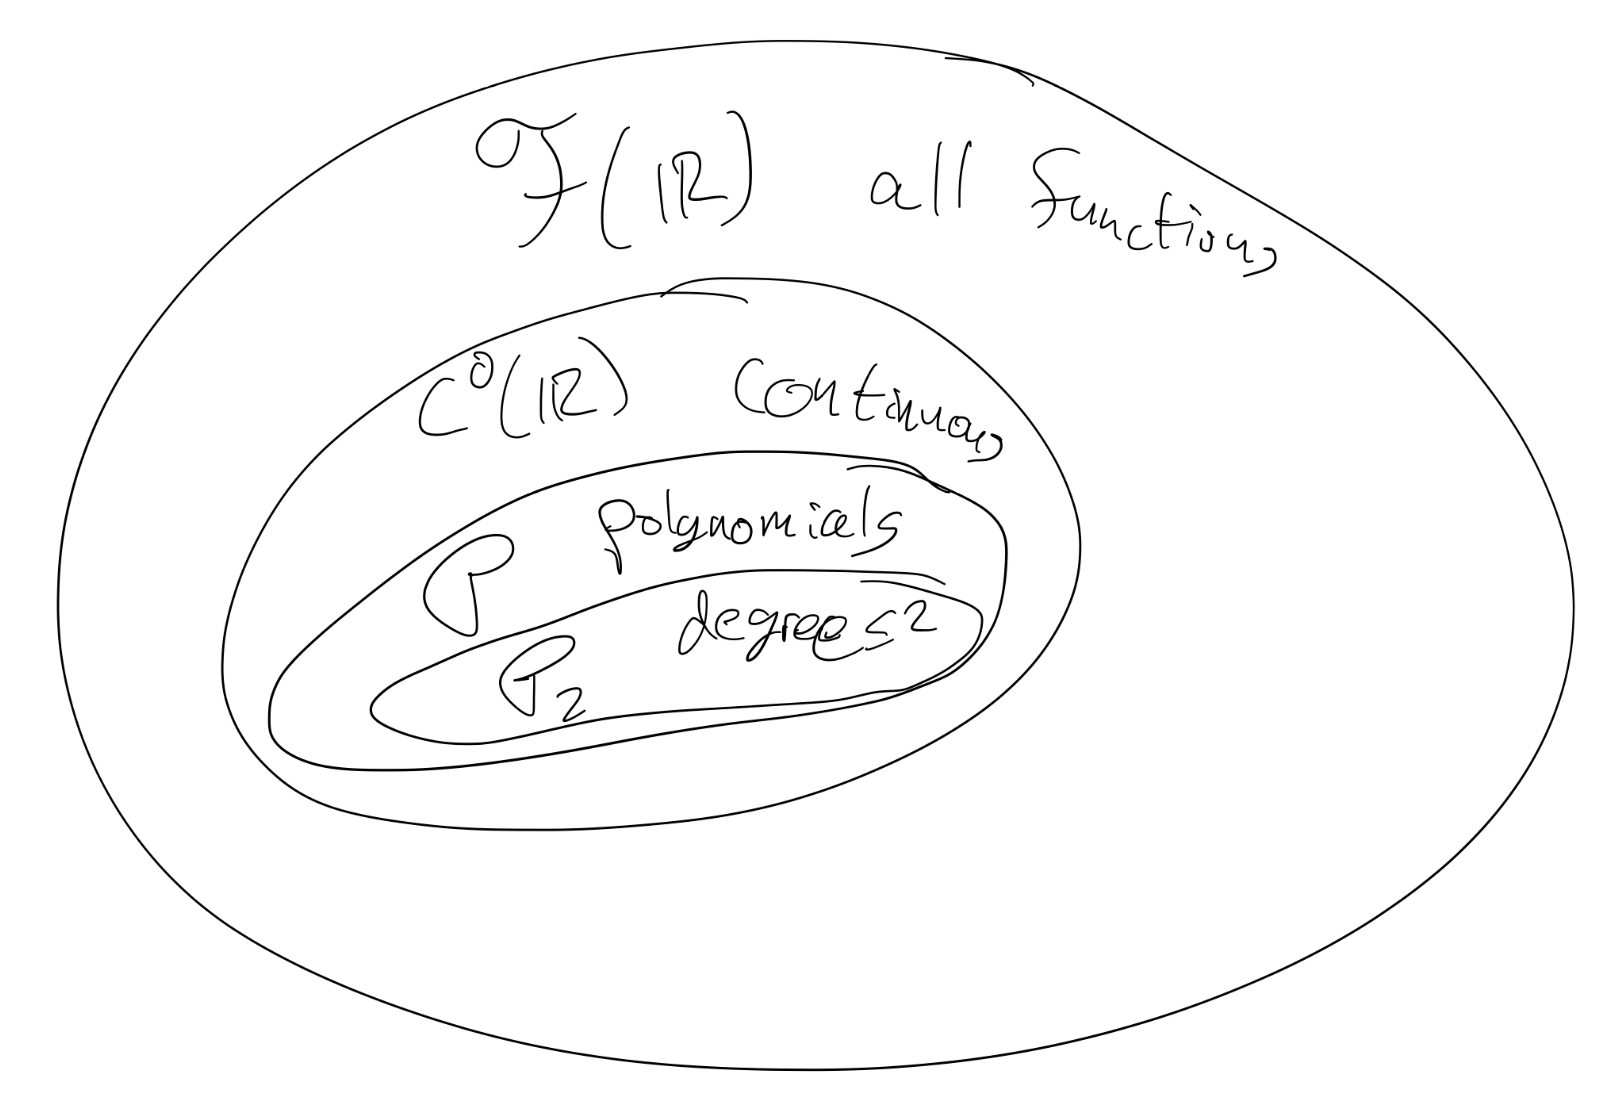 ℱ(ℝ) all functions
C⁰(ℝ) continuous
P polynomials
P₂ degree ≤ 2